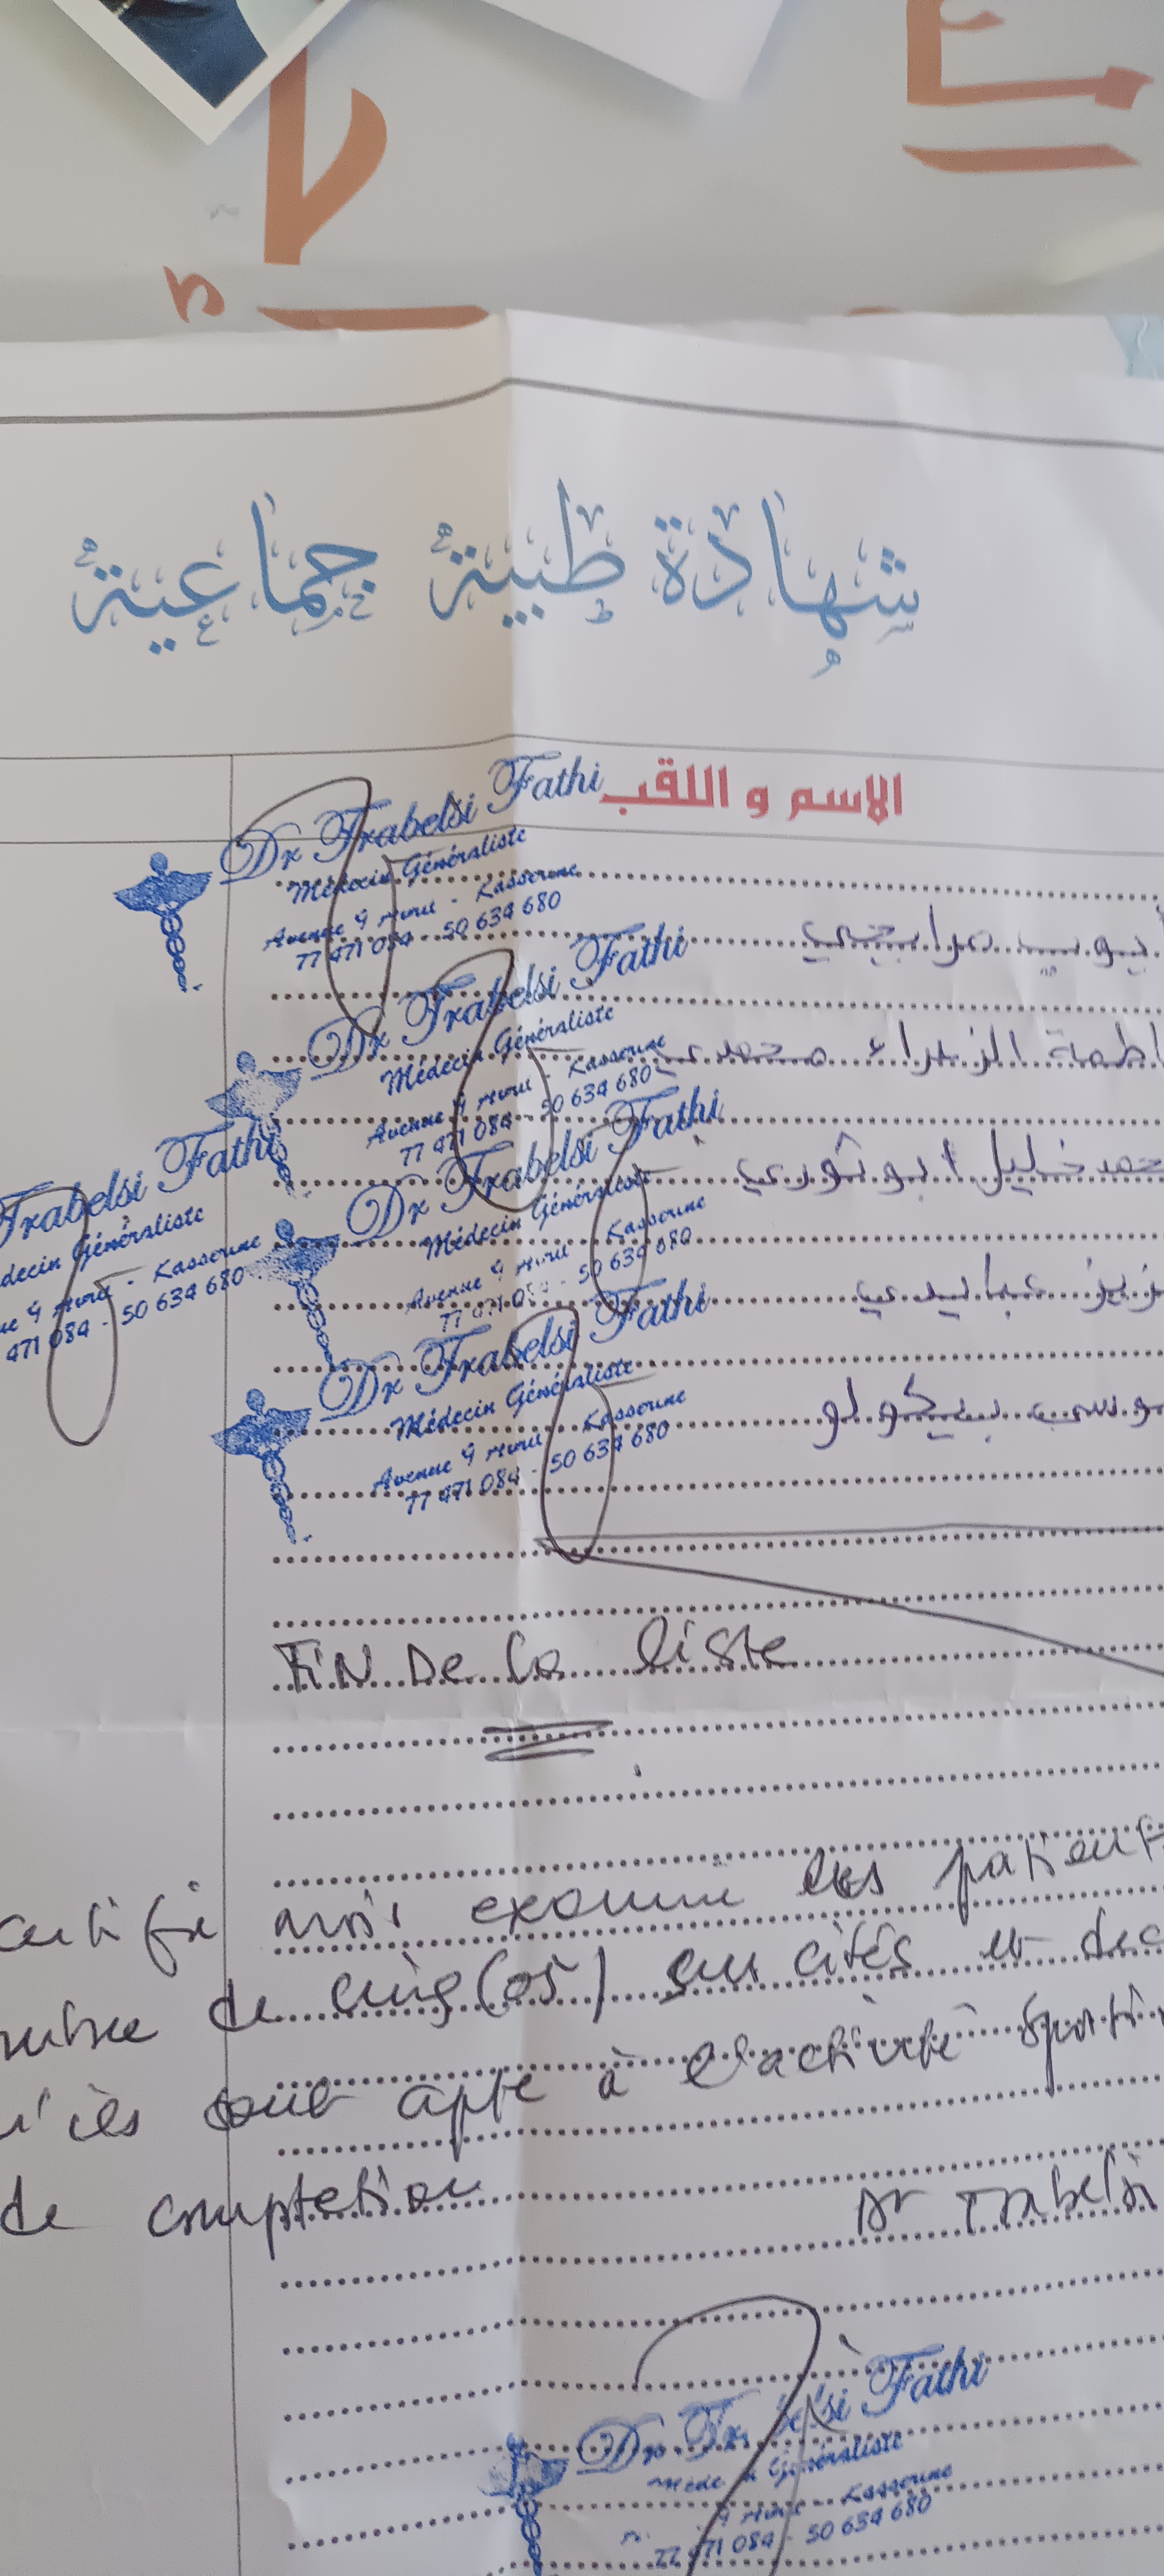 شهادة طبية جماعية
الاسم و اللقب
Dr Trabelsi Fathi
Médecin Généraliste
Avenue 9 Avril - Kasserine
77 471 084 - 50 634 680
مرابحي
Dr Trabelsi Fathi
Médecin Généraliste
Avenue 9 Avril - Kasserine
77 471 084 - 50 634 680
الزهراء محمدي
Trabelsi Fathi
Généraliste
9 Avril - Kasserine
471 084 - 50 634 680
Dr Trabelsi Fathi
Médecin Généraliste
Avenue 9 Avril - Kasserine
77 471 084 - 50 634 680
خليل
عبايدي
Dr Trabelsi Fathi
Médecin Généraliste
Avenue 9 Avril - Kasserine
77 471 084 - 50 634 680
بيكولو
FIN De la liste
examiné les patient
de cinq (05) sus cités et dec
ils sont apte à l'activité sporti
de comptetion
Dr Trabelsi
Dr Trabelsi Fathi
Généraliste
9 Avril - Kasserine
77 471 084 - 50 634 680